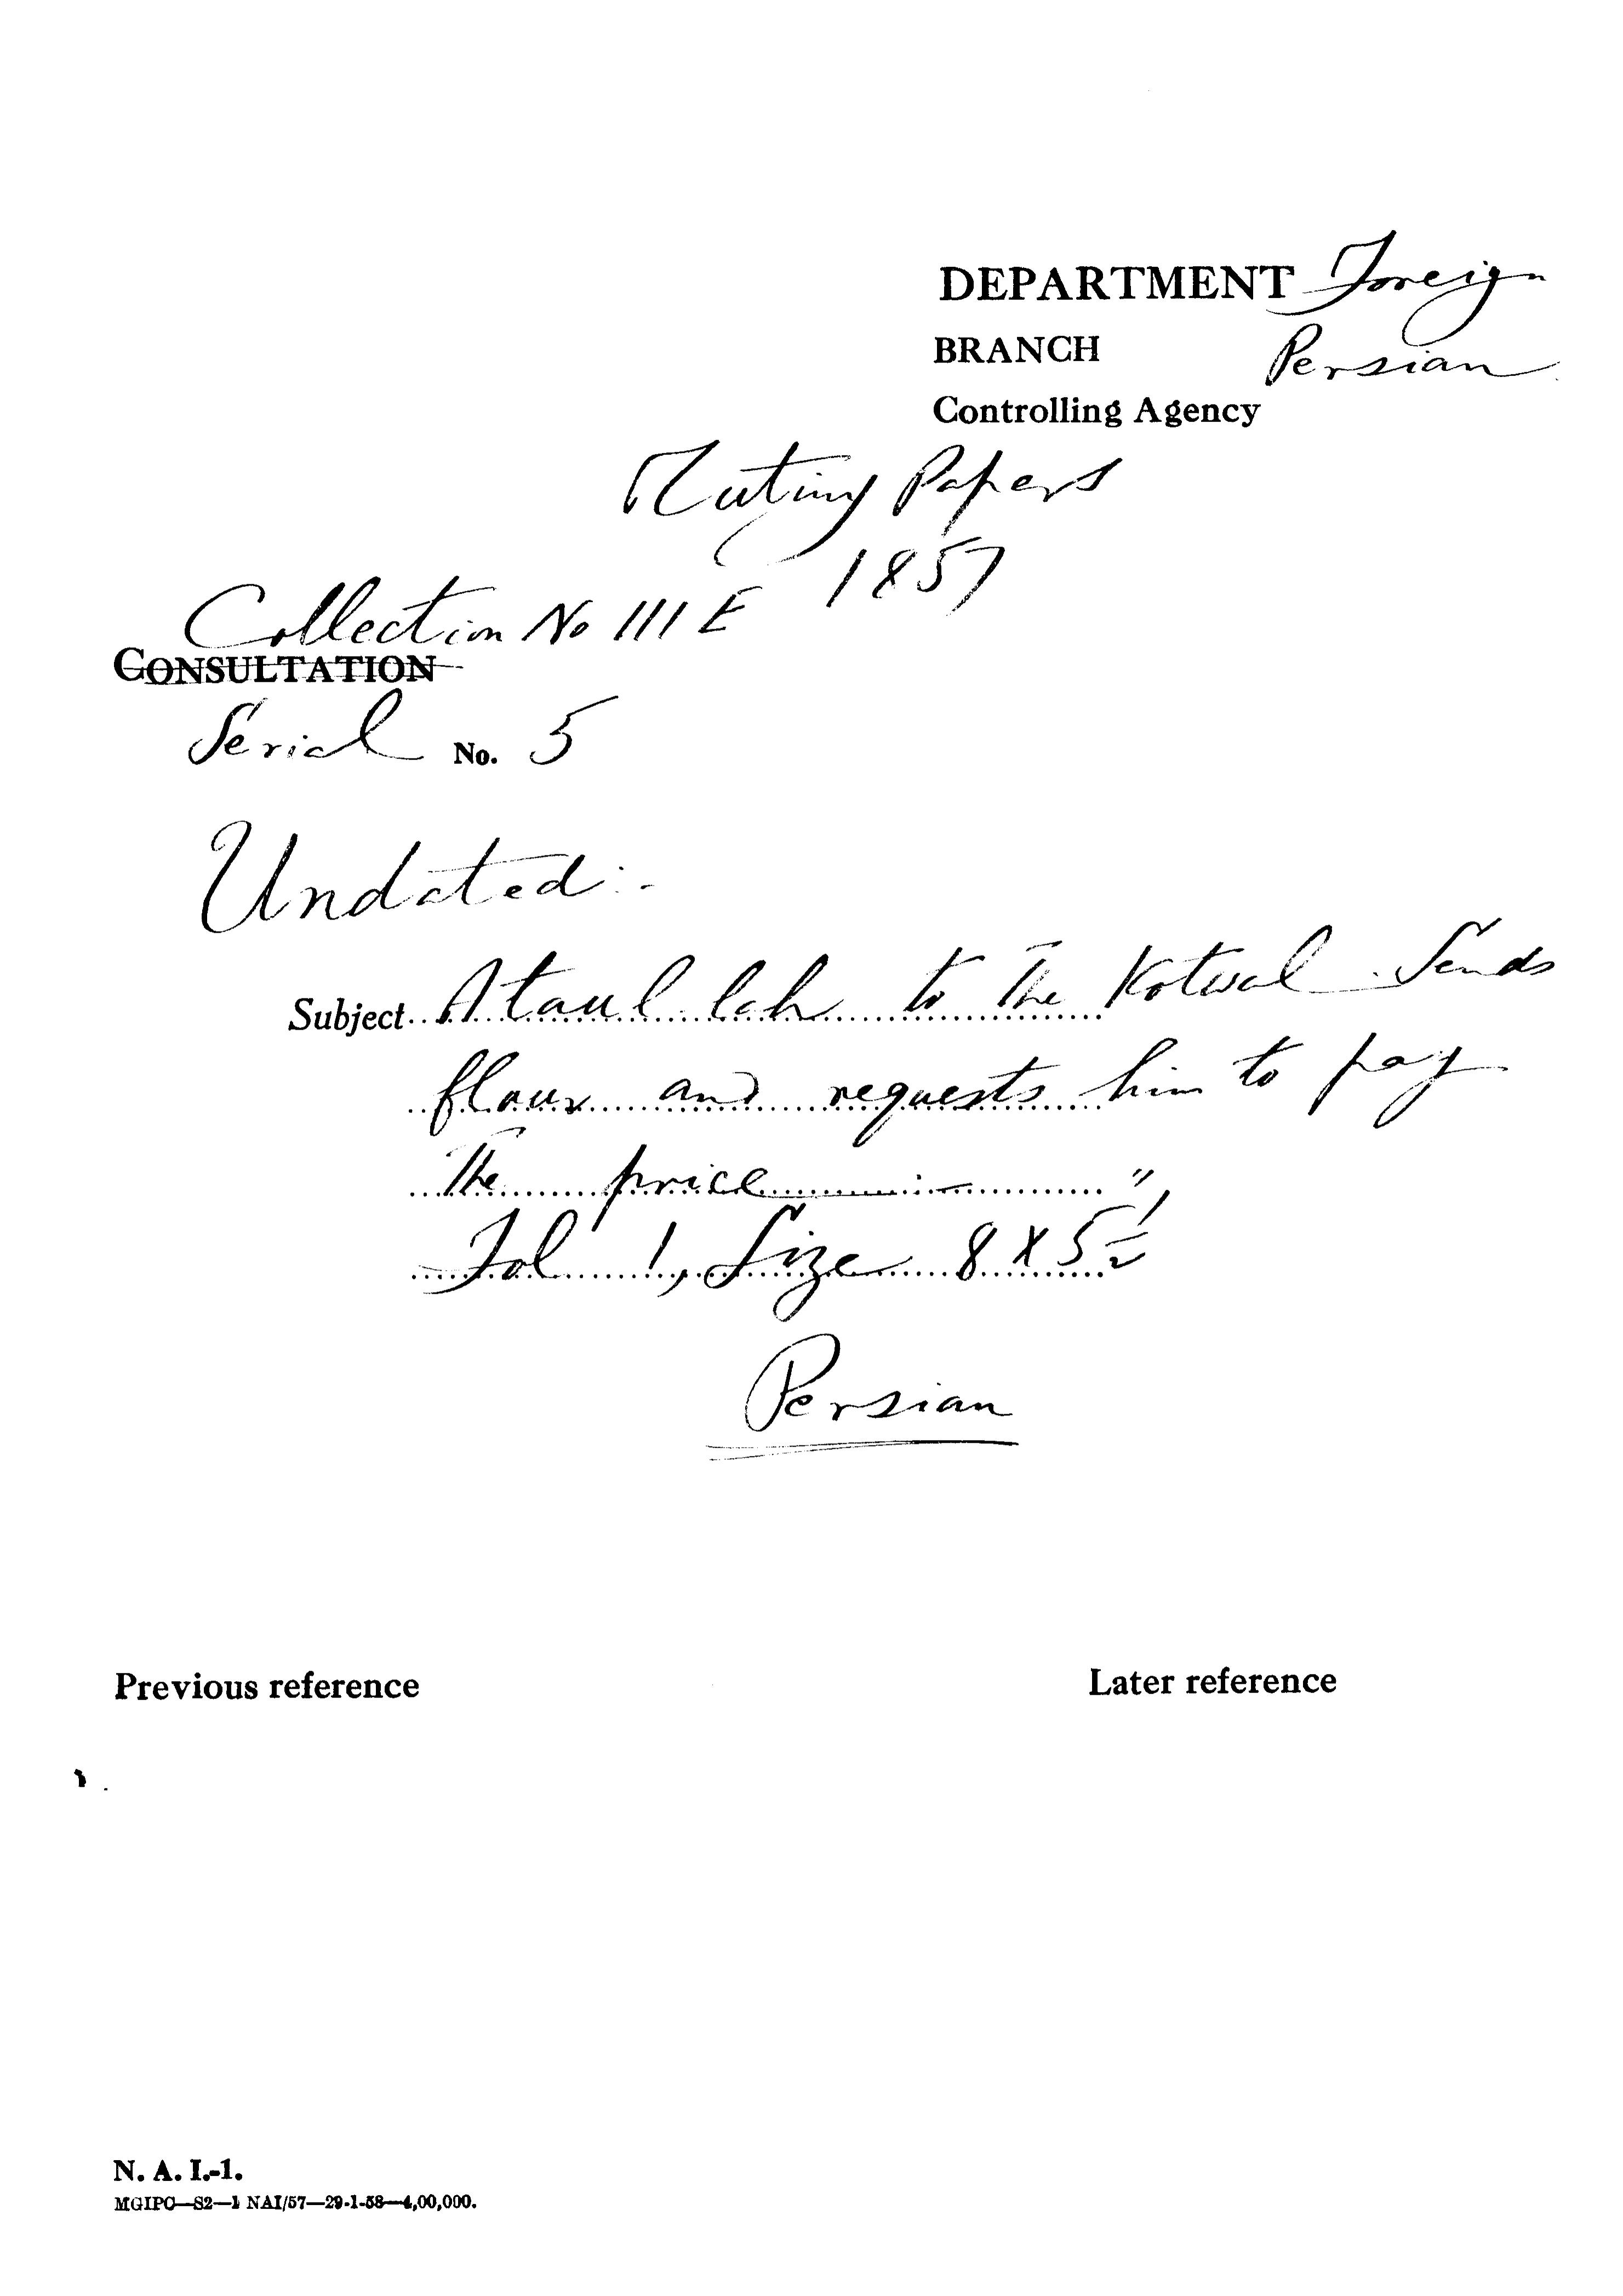 DEPARTMENT Foreign
BRANCH Persian
Controlling Agency
Mutiny Papers
1857
Collection No III E
CONSULTATION
Serial No. 5
Undated :-
Subject Ataul lah to the Kotwal Sends
flour and requests him to pay
The price :- "
Fol 1, Size 8 X 5 1/2
Persian
Previous reference
Later reference
N. A. I.-1.
MGIPC—S2—1 NAI/57—29-1-58—4,00,000.